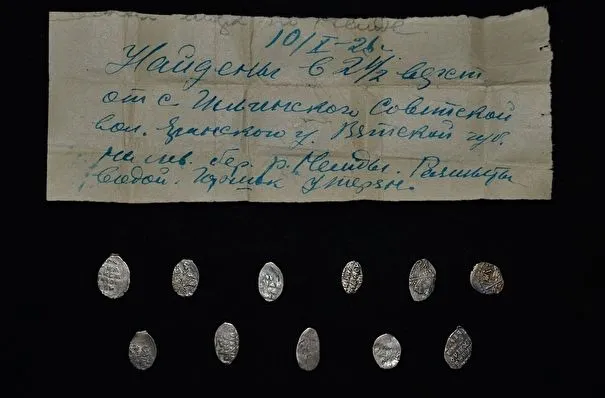 10/I-26.
Найдены в 2 1/2 верст
от с. Ильинского Советской
вол. Яранского у. Вятской губ.
на лев. бер. р. Немды. Размыты
водой. Горшок утерян.